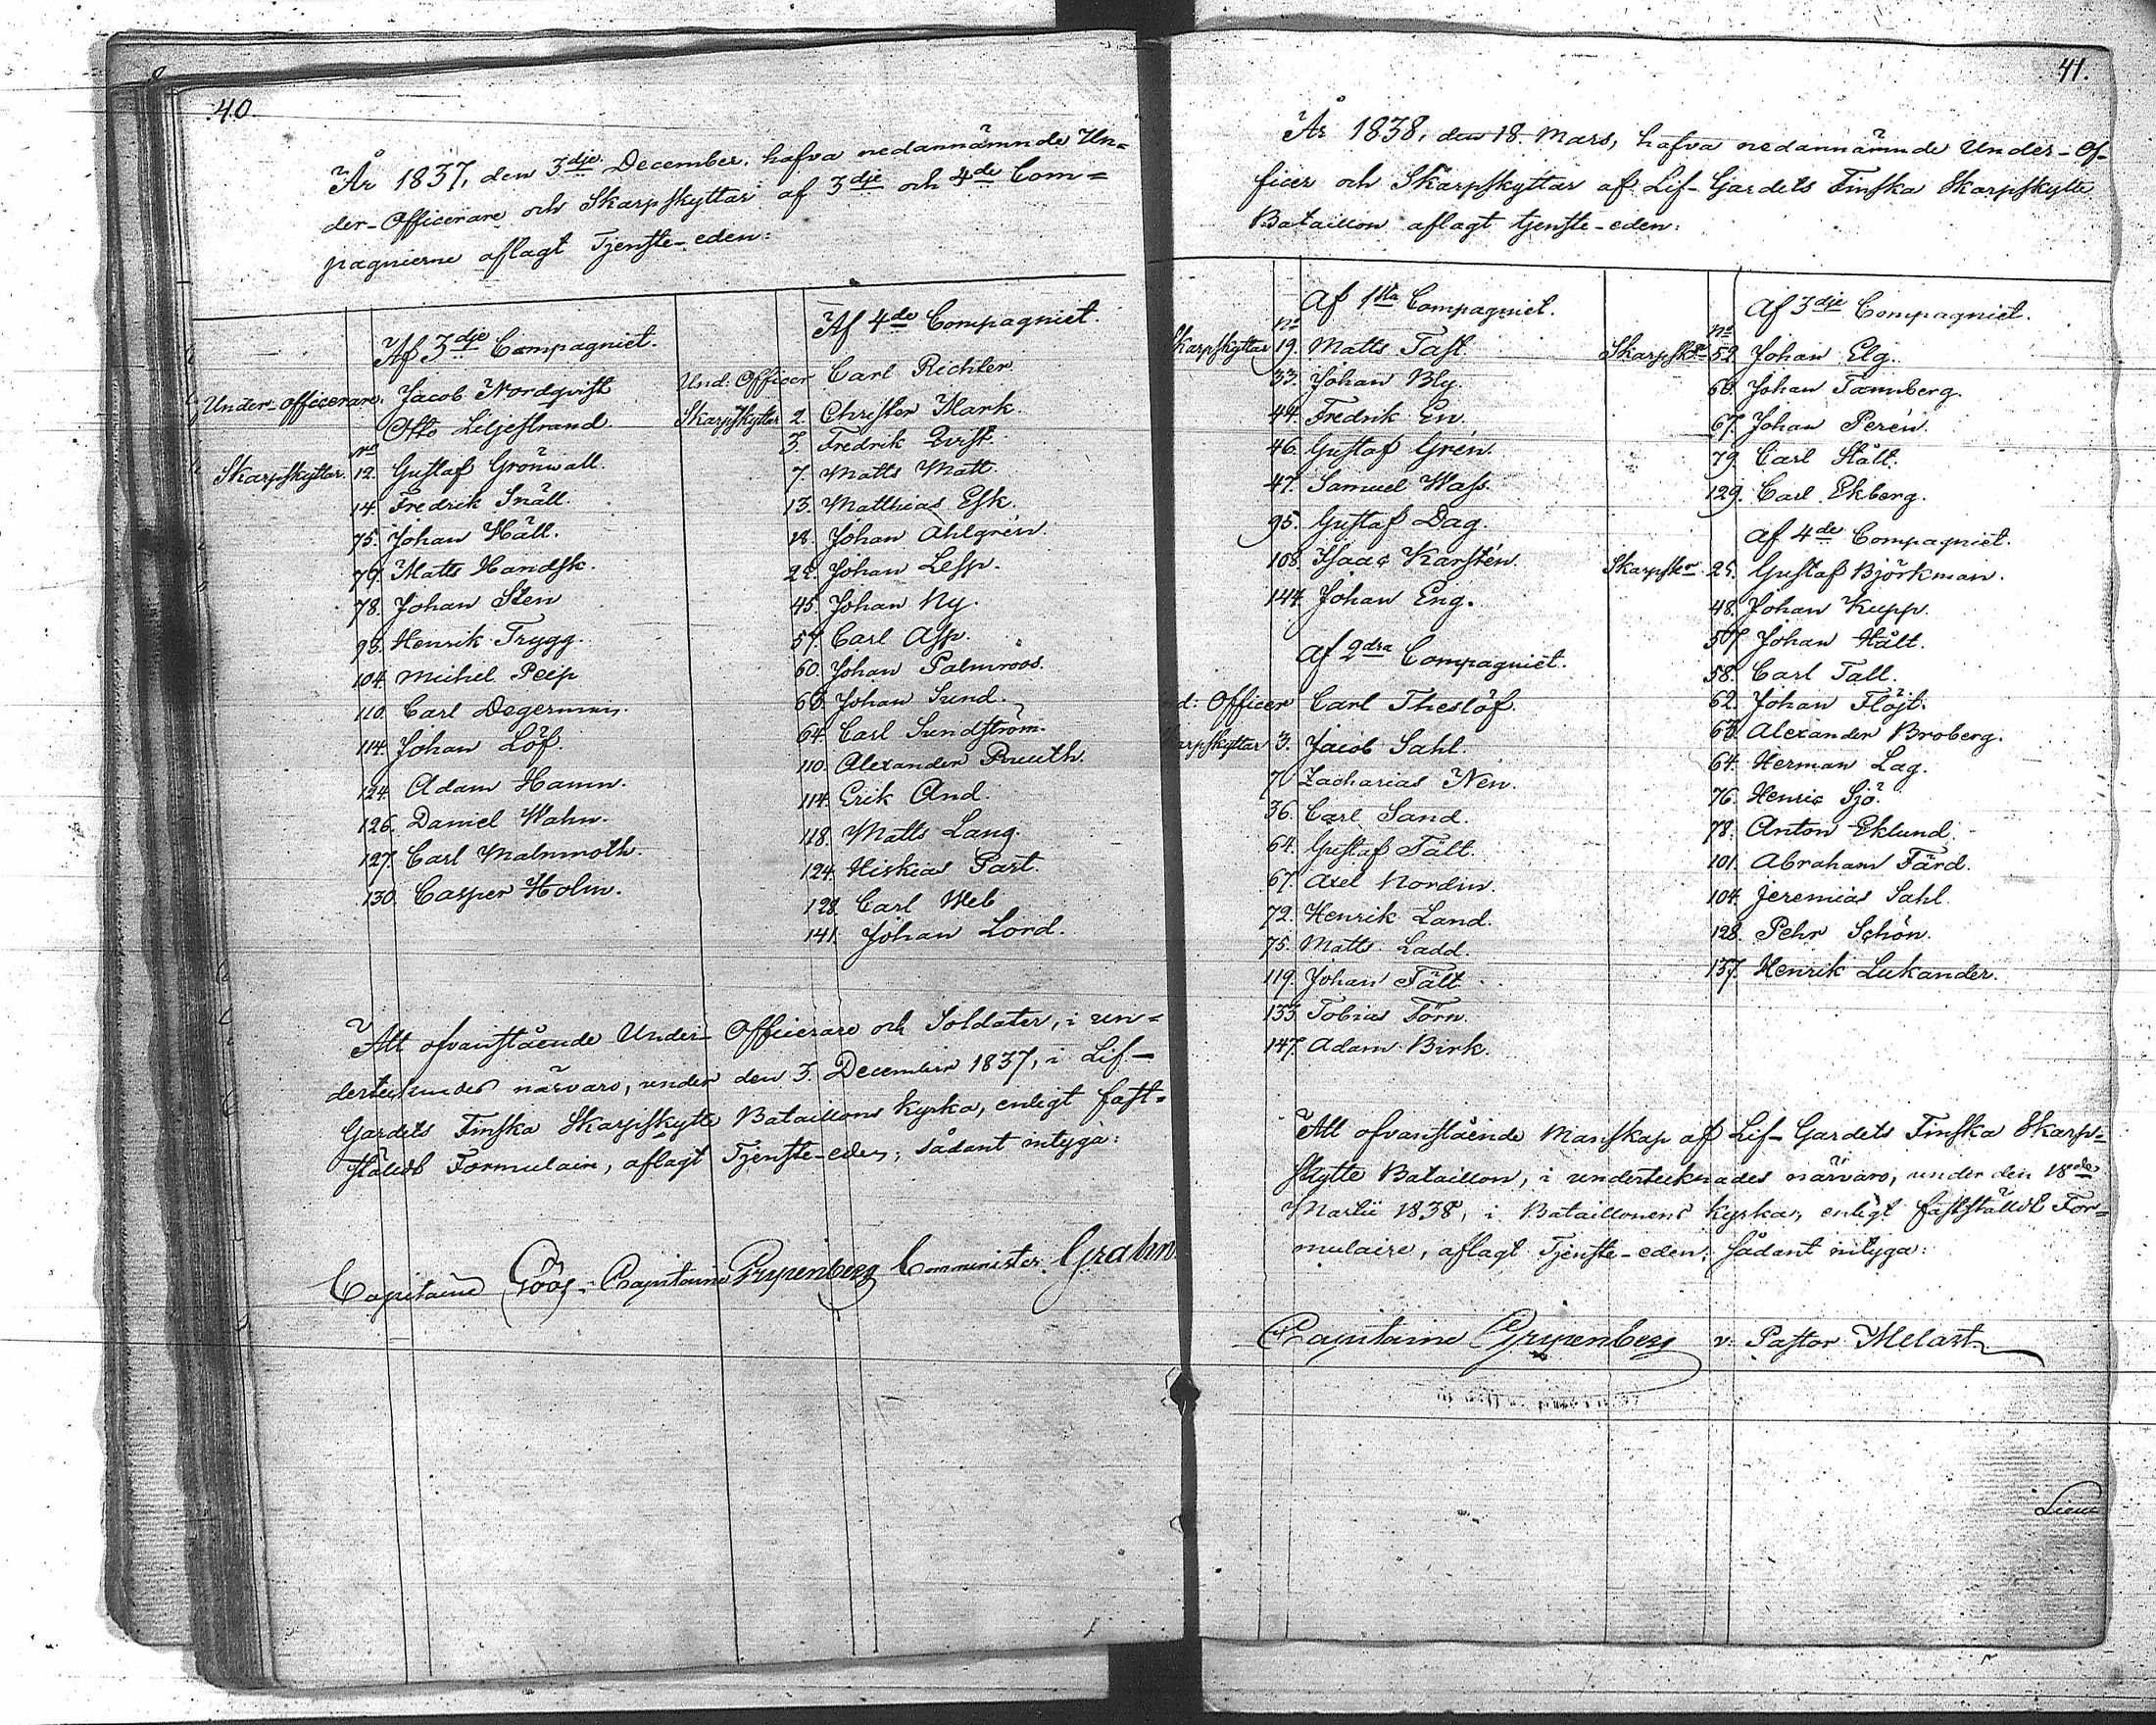 40.
År 1837, den 3dje December, hafva nedannämnde Un=
der-Officerare och Skarpskyttar af 3dje och 4de Com=
pagnierne aflagt Tjenste-eden:
Af 3dje Compagniet.
Under-officerare. Jacob Nordqvist
Otto Liljestrand
No
Skarpskyttar. 12. Gustaf Grönwall.
14. Fredrik Snäll.
75. Johan Häll.
76. Matts Handsk.
78. Johan Sten
95. Henrik Trygg.
104. Michel Peip
110. Carl Degerman.
114. Johan Löf.
124. Adam Hamn.
126. Daniel Wahn.
127. Carl Malmroth.
130. Casper Holm.
Af 4de Compagniet.
Und. Officer Carl Richter.
Skarpskyttar 2. Christer Mark.
3. Fredrik Qvist.
7. Matts Matt.
13. Matthias Esk.
18. Johan Ahlgrén.
Johan Lesp.
45. Johan Ny.
57. Carl Asp.
60. Johan Palmroos.
Johan Sund.
64. Carl Sundström.
110. Alexander Pruuth.
114. Erik And.
118. Matts Lang.
124. Hiskias Part.
128. Carl Web
141. Johan Lord.
Att ofvanstående Under-Officerare och Soldater, i un=
dertecknades närvaro, under den 3. December 1837, i Lif-
Gardets Finska Skarpskytte Bataillons kyrka, enligt fast=
stäldt Formulaire, aflagt Tjenste-eden; sådant intyga:
Capitaine Göös. Capitaine Gripenberg Comminister Grahn.
41.
År 1838, den 18. Mars, hafva nedannämnde Under-Of-
ficer och Skarpskyttar af Lif-Gardets Finska Skarpskytte
Bataillon aflagt tjenste-eden:
Af 1sta Compagniet.
No
Skarpskyttar 19. Matts Fast.
33. Johan Bly.
44. Fredrik En.
46. Gustaf Grén.
47. Samuel Wass.
95. Gustaf Dag.
108. Isaac Karstén.
144. Johan Eng.
Af 2dra Compagniet.
Und: Officer Carl Theslöf.
Skarpskyttar 3. Jacob Sahl.
7. Zacharias Nén.
36. Carl Sand.
64. Gustaf Fält.
67. Axel Nordin.
72. Henrik Land.
75. Matts Ladd.
119. Johan Fält
133. Tobias Törn.
147. Adam Birk.
Af 3dje Compagniet.
No
Skarpsk. 52. Johan Elg.
66. Johan Tammberg.
67. Johan Perén.
79. Carl Stålt.
129. Carl Ekberg.
Af 4de Compagniet.
Skarpsk. 25. Gustaf Björkman.
48. Johan Kupp.
Johan Hålt.
58. Carl Tall.
62. Johan Flöjt.
63. Alexander Broberg.
64. Herman Lag.
76. Henric Sjö.
78. Anton Eklund.
101. Abraham Färd.
104. Jeremias Sahl.
128. Pehr Schön.
137. Henrik Lukander.
Att ofvanstående Manskap af Lif-Gardets Finska Skarp=
skytte Bataillon, i undertecknades närvaro, under den 18de
Martii 1838, i Bataillonens kyrka, enligt fastställdt For=
mulaire, aflagt Tjenste-eden: sådant intyga:
Capitaine Gripenberg v. Pastor Melart
Lieut